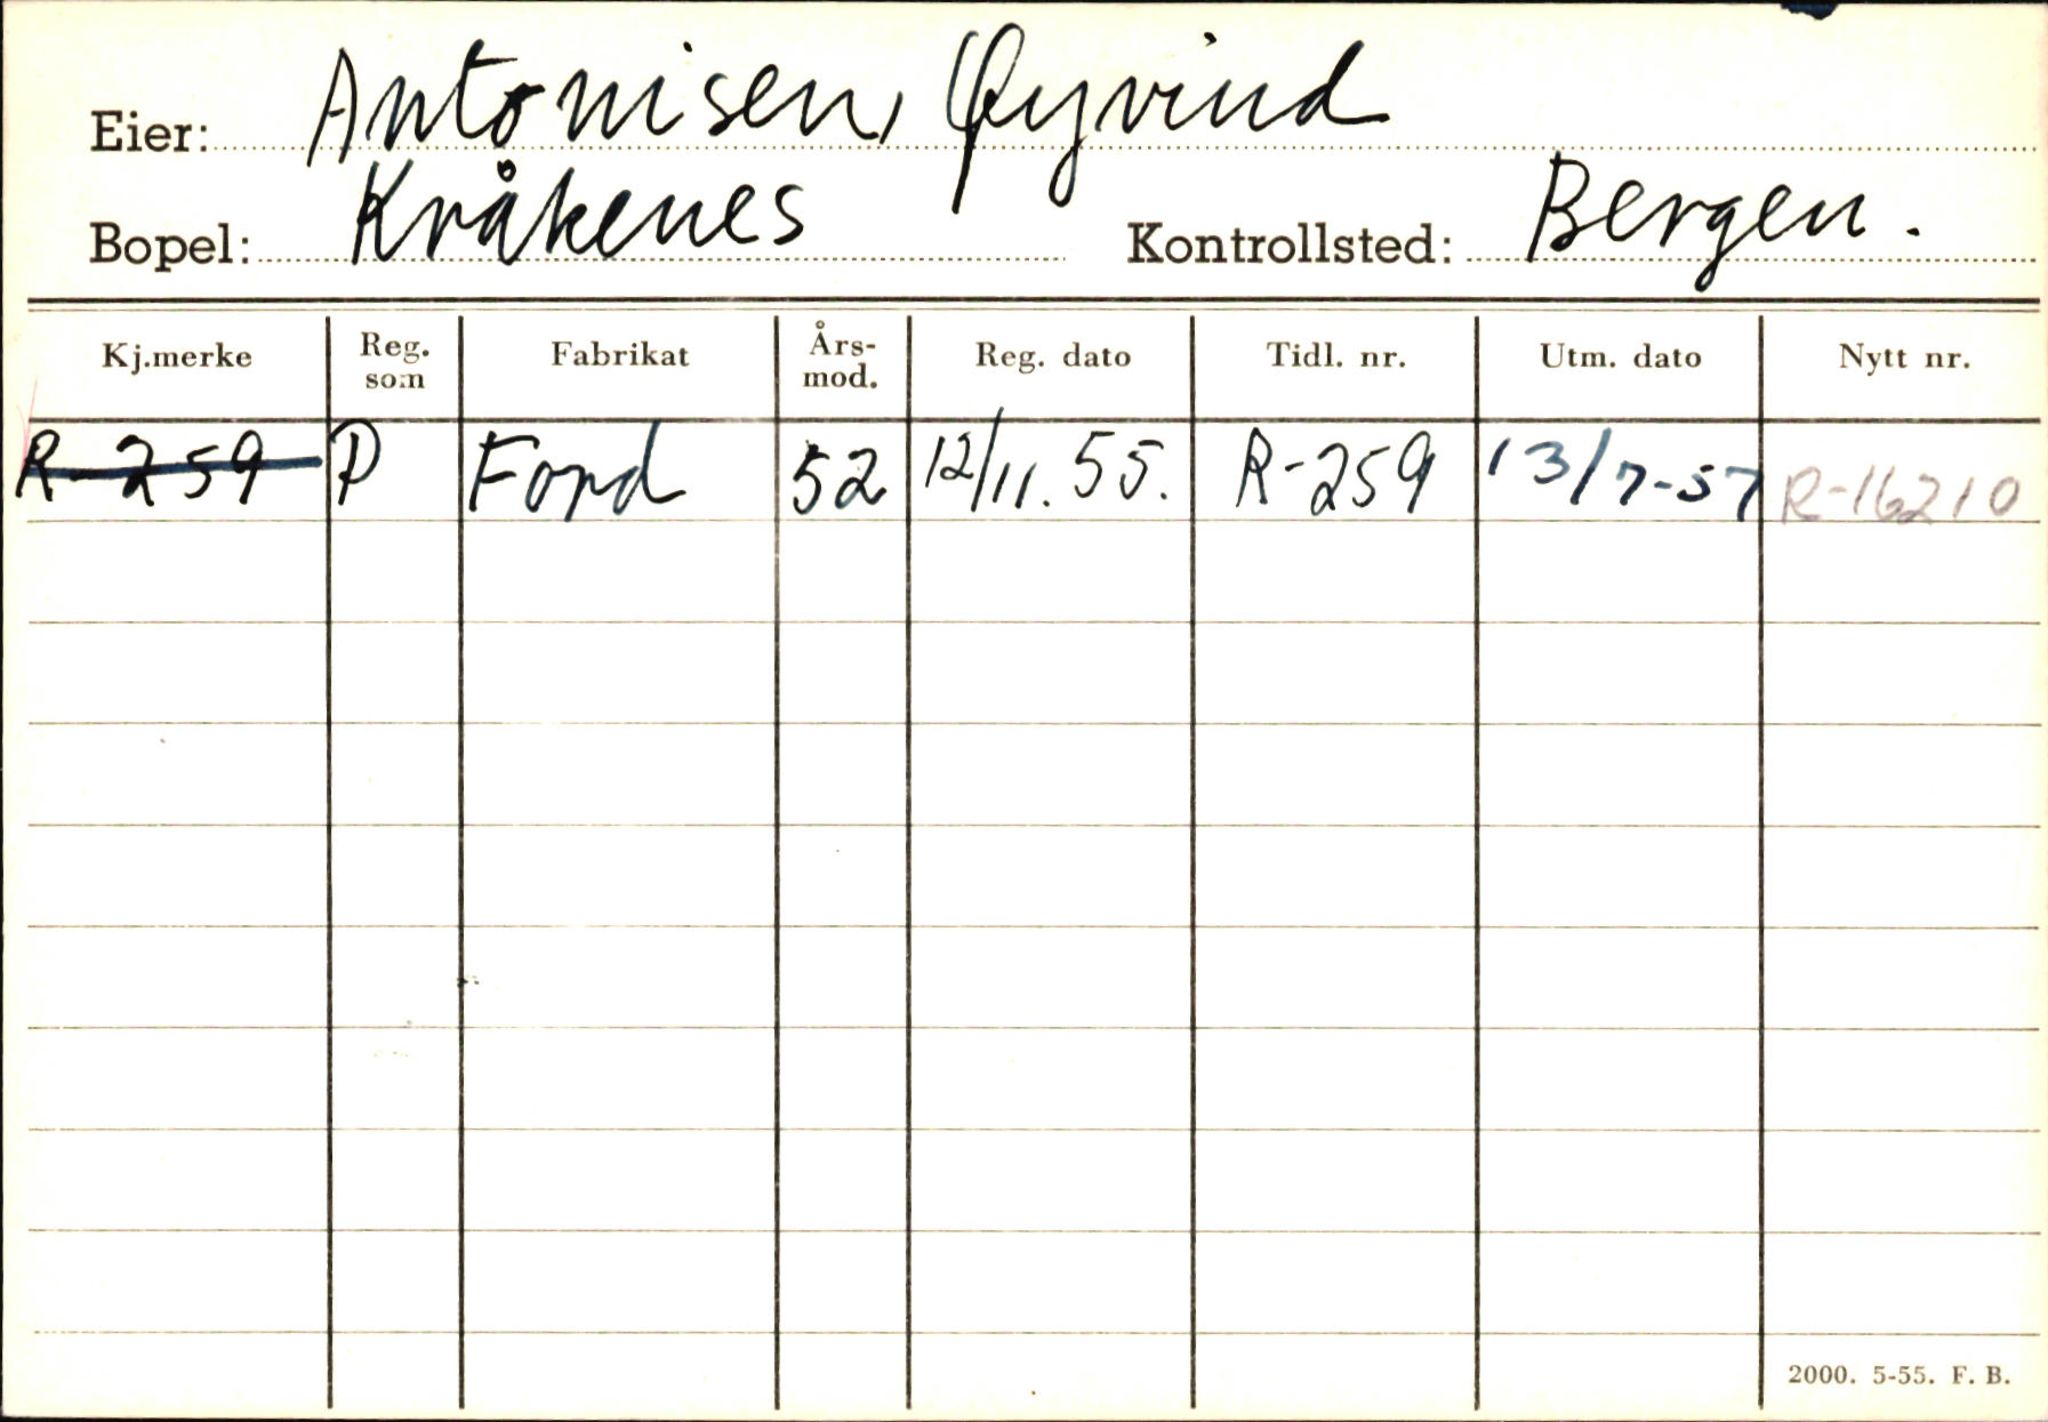 Eier: Antonisen, Øyvind
Bopel: Kråkenes Kontrollsted: Bergen.
Kj.merke Reg. som Fabrikat Års-mod. Reg. dato Tidl. nr. Utm. dato Nytt nr.
R-259 P Ford 52 12/11.55. R-259 13/7-57 R-16210
2000. 5-55. F. B.